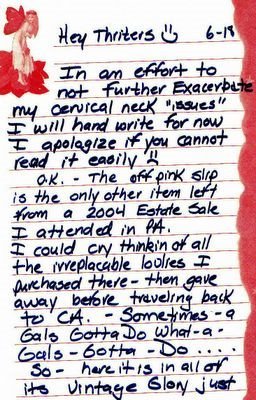 Hey Thriters ☺ 6-18
In an effort to
not further Exacerbate
my cervical neck "issues"
I will hand write for now
I apologize if you cannot
read it easily ☹
O.K. - The off pink slip
is the only other item left
from a 2004 Estate Sale
I attended in PA.
I could cry thinkin of all
the irreplacable lovlies I
purchased there - then gave
away before traveling back
to CA. - Sometimes - a
Gals Gotta Do What - a -
Gals - Gotta - Do ....
So - here it is in all of
its Vintage Glory just